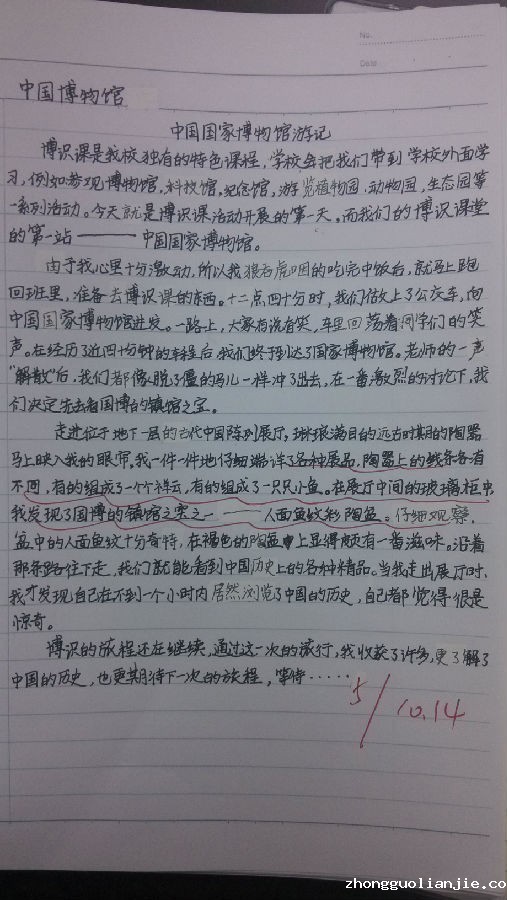 No.
Date
中国博物馆
中国国家博物馆游记
博识课是我校独有的特色课程，学校会把我们带到学校外面学
习，例如参观博物馆，科技馆，纪念馆，游览植物园，动物园，生态园等
一系列活动。今天就是博识课活动开展的第一天。而我们的博识课堂
的第一站——中国国家博物馆。
由于我心里十分激动，所以我狼吞虎咽的吃完中饭后，就马上跑
回班里，准备去博识课的东西。十二点四十分时，我们做上了公交车，向
中国国家博物馆进发。一路上，大家有说有笑，车里回荡着同学们的笑
声。在经历了近四十分钟的车程后，我们终于到达了国家博物馆。老师的一声
“解散”后，我们都像脱了僵的马儿一样冲了出去，在一番激烈的讨论下，我
们决定先去看国博的镇馆之宝。
走进位于地下一层的古代中国陈列展厅，琳琅满目的远古时期的陶器
马上映入我的眼帘，我一件一件地仔细端详了各种展品，陶器上的线条各有
不同，有的组成了一个个祥云，有的组成了一只只小鱼。在展厅中间的玻璃柜中，
我发现了国博的镇馆之宝之一——人面鱼纹彩陶盆。仔细观察，
盆中的人面鱼纹十分奇特，在褐色的陶盆上显得颇有一番滋味。沿着
那条路往下走，我们就能看到中国历史上的各种精品。当我走出展厅时，
我才发现自己在不到一个小时内居然浏览了中国的历史，自己都觉得很是
惊奇。
博识的旅程还在继续，通过这一次的旅行，我收获了许多，更了解了
中国的历史，也更期待下一次的旅程，等待……
5/10.14
zhongguolianjie.co